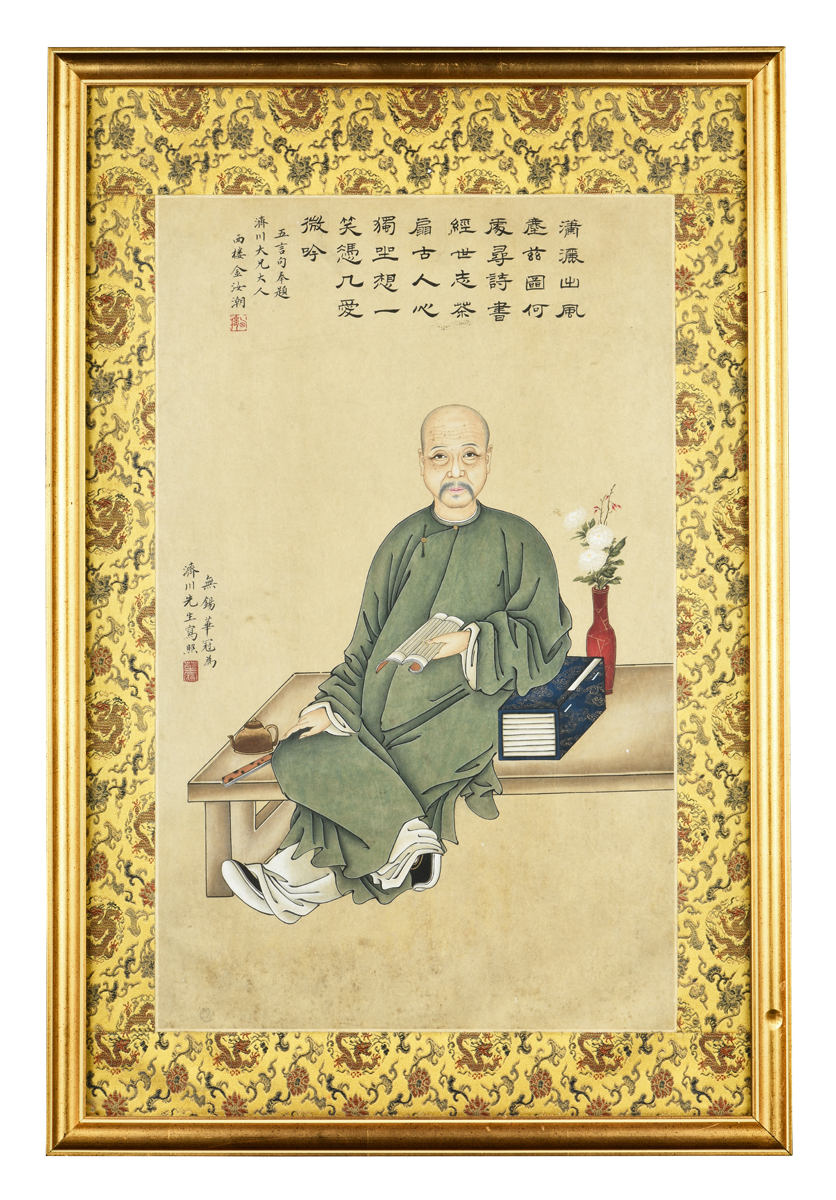 瀟灑出風
塵茲圖何
處尋詩書
經世志茶
扇古人心
獨坐想一
笑憑几愛
微吟
五言句奉題
濟川大兄大人
雨樓金汝潮
無錫華冠為
濟川先生寫照